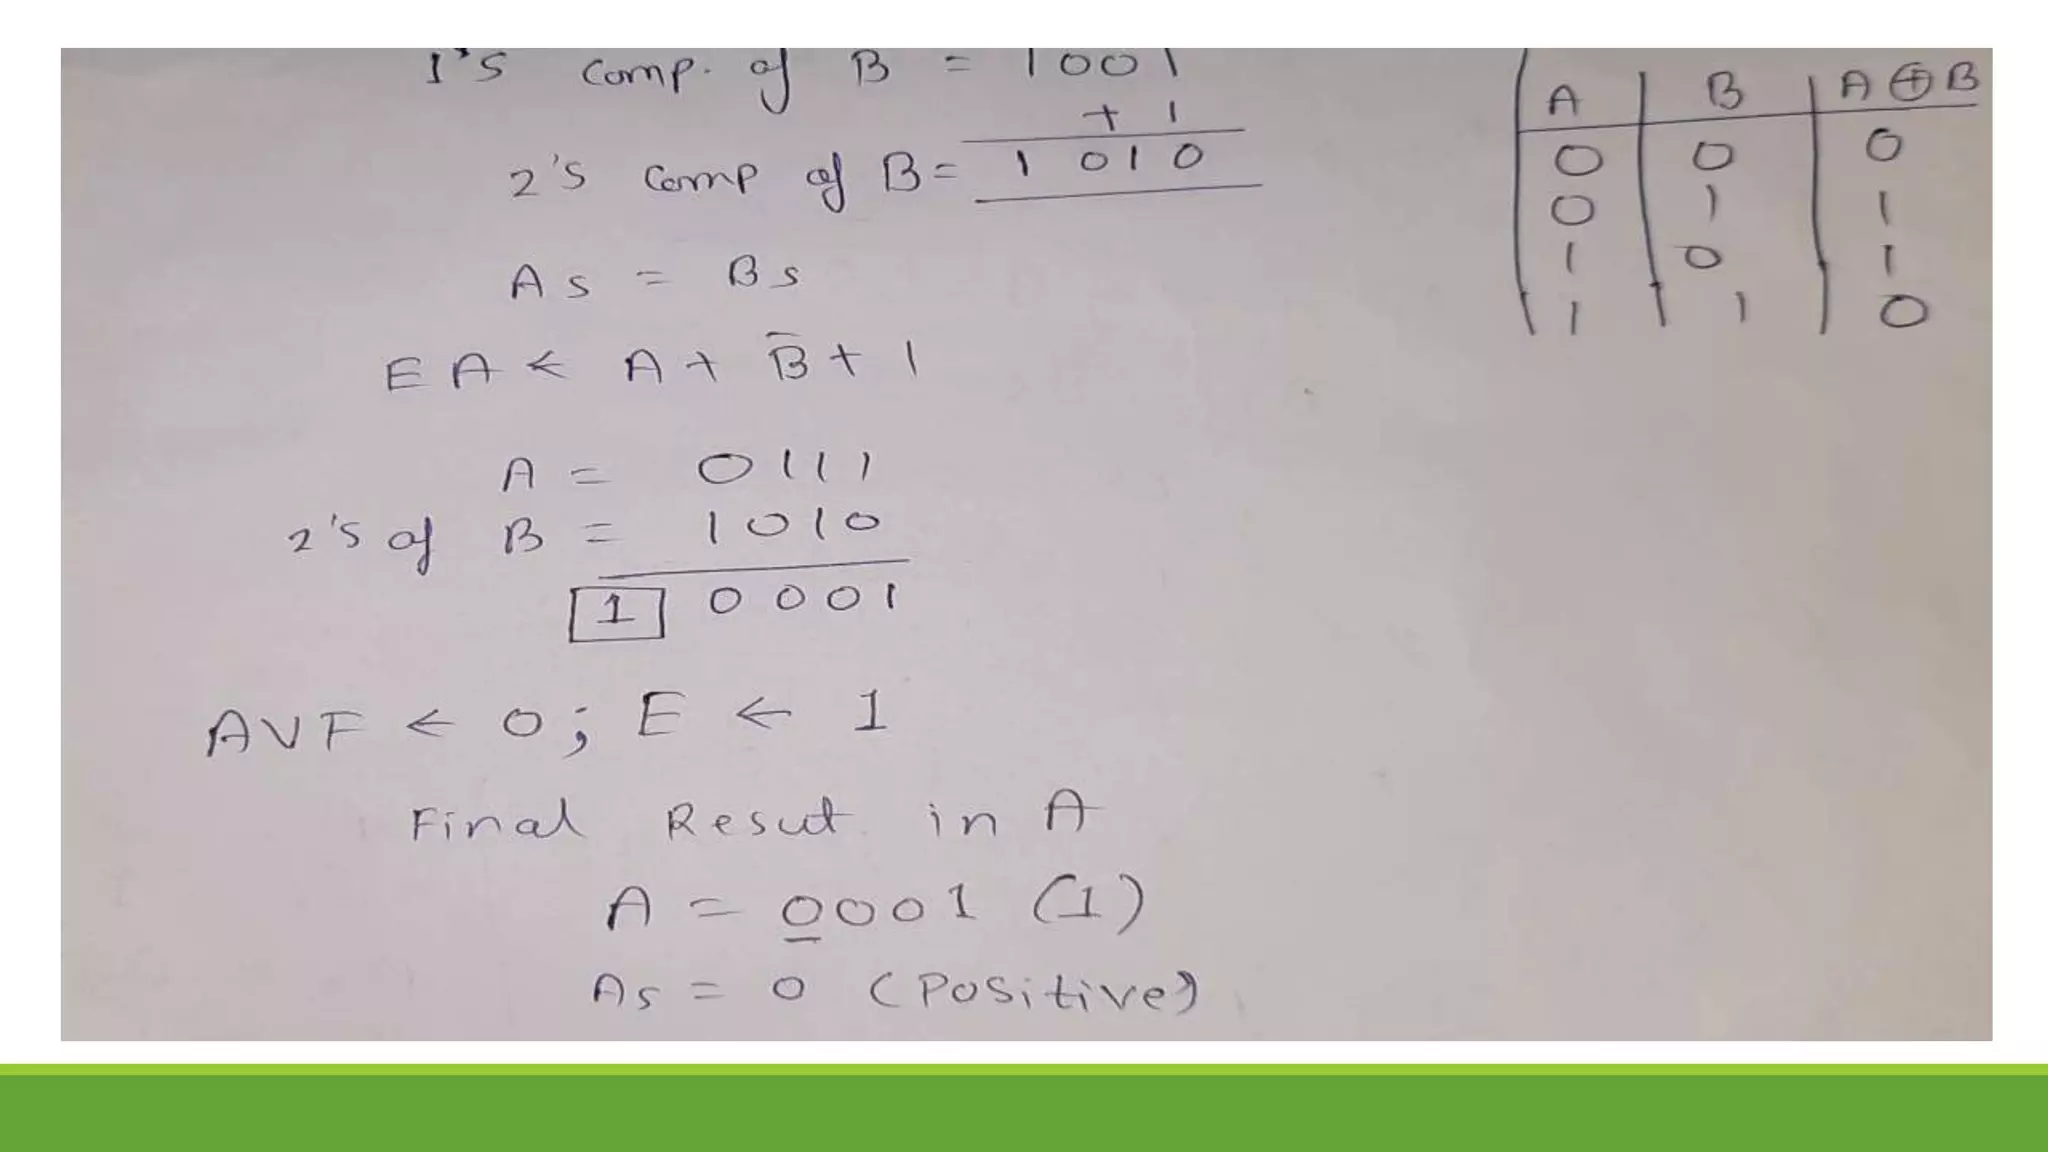 1's comp. of B = 1001
+ 1
2's comp of B = 1 010
As = Bs
EA ← A + B̅ + 1
A = 0111
2's of B = 1010
1 0001
AVF ← 0; E ← 1
Final Resut in A
A = 0001 (1)
As = 0 (Positive)
A | B | A ⊕ B
0 | 0 | 0
0 | 1 | 1
1 | 0 | 1
1 | 1 | 0